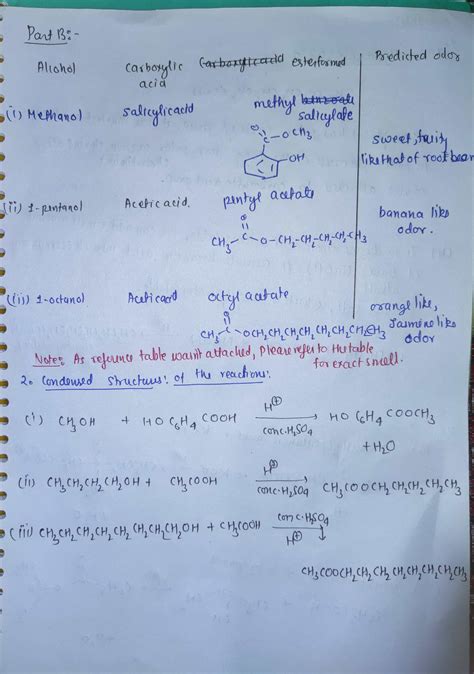 Part B:-
Alcohol Carboxylic acid Carboxylic acid ester formed Predicted odor
(i) Methanol salicylic acid methyl benzoate salicylate sweet, fruity like that of root beer
O
C - OCH3
OH
(ii) 1-pentanol Acetic acid. pentyl acetate banana like odor.
O
CH3-C-O-CH2-CH2-CH2-CH2-CH3
(iii) 1-octanol Acetic acid octyl acetate orange like, Jasmine like odor
O
CH3-C-OCH2CH2CH2CH2CH2CH2CH2CH3
Note: As reference table wasn't attached, Please refer to the table for exact smell.
2. Condensed structures of the reactions:
(i) CH3OH + HO C6H4 COOH H⊕ conc. H2SO4 → HO C6H4 COOCH3 + H2O
(ii) CH3CH2CH2CH2OH + CH3COOH H⊕ conc. H2SO4 → CH3COOCH2CH2CH2CH2CH3
(iii) CH3CH2CH2CH2CH2CH2CH2CH2OH + CH3COOH conc. H2SO4 H⊕
CH3COOCH2CH2CH2CH2CH2CH2CH2CH3